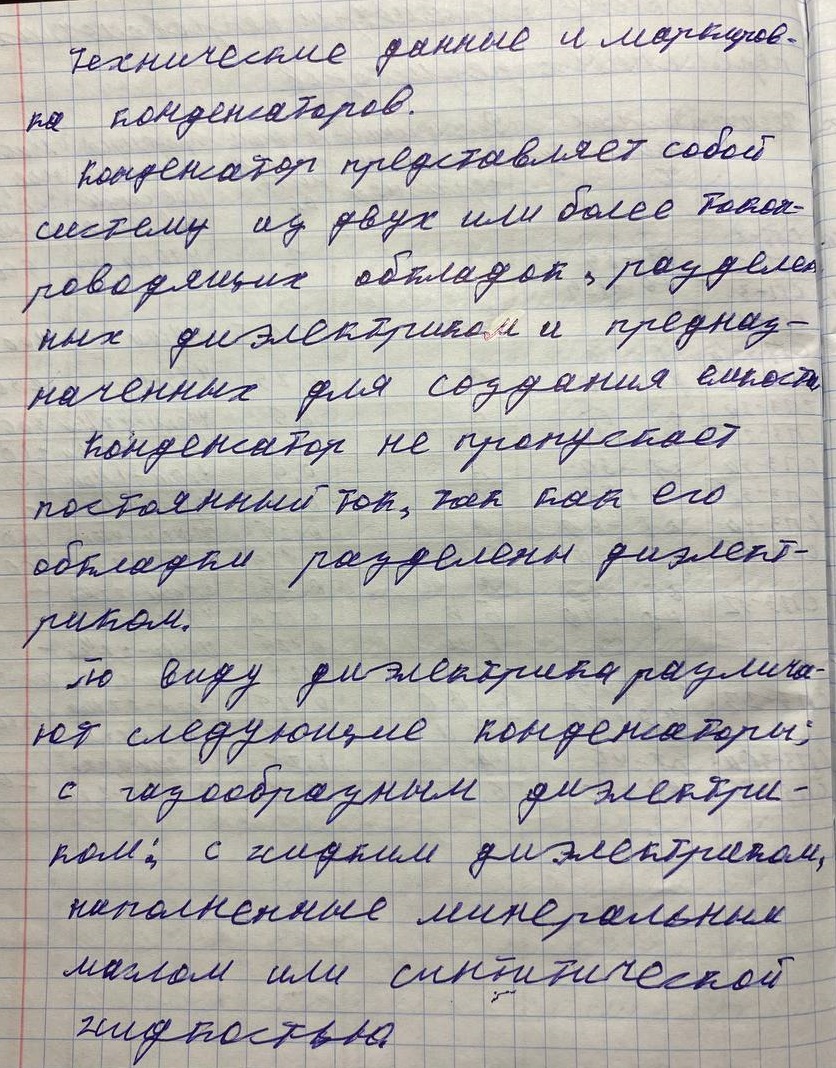 Технические данные и маркиров-
ка конденсаторов.
Конденсатор представляет собой
систему из двух или более токоп-
роводящих обкладок, разделен
ных диэлектриком и предназ-
наченных для создания емкости
Конденсатор не пропускает
постоянный ток, так как его
обкладки разделены диэлект-
риком.
По виду диэлектрика различа-
ют следующие конденсаторы;
с газообразным диэлектри-
ком; с жидким диэлектриком,
наполненные минеральным
маслом или синтитической
жидкостью